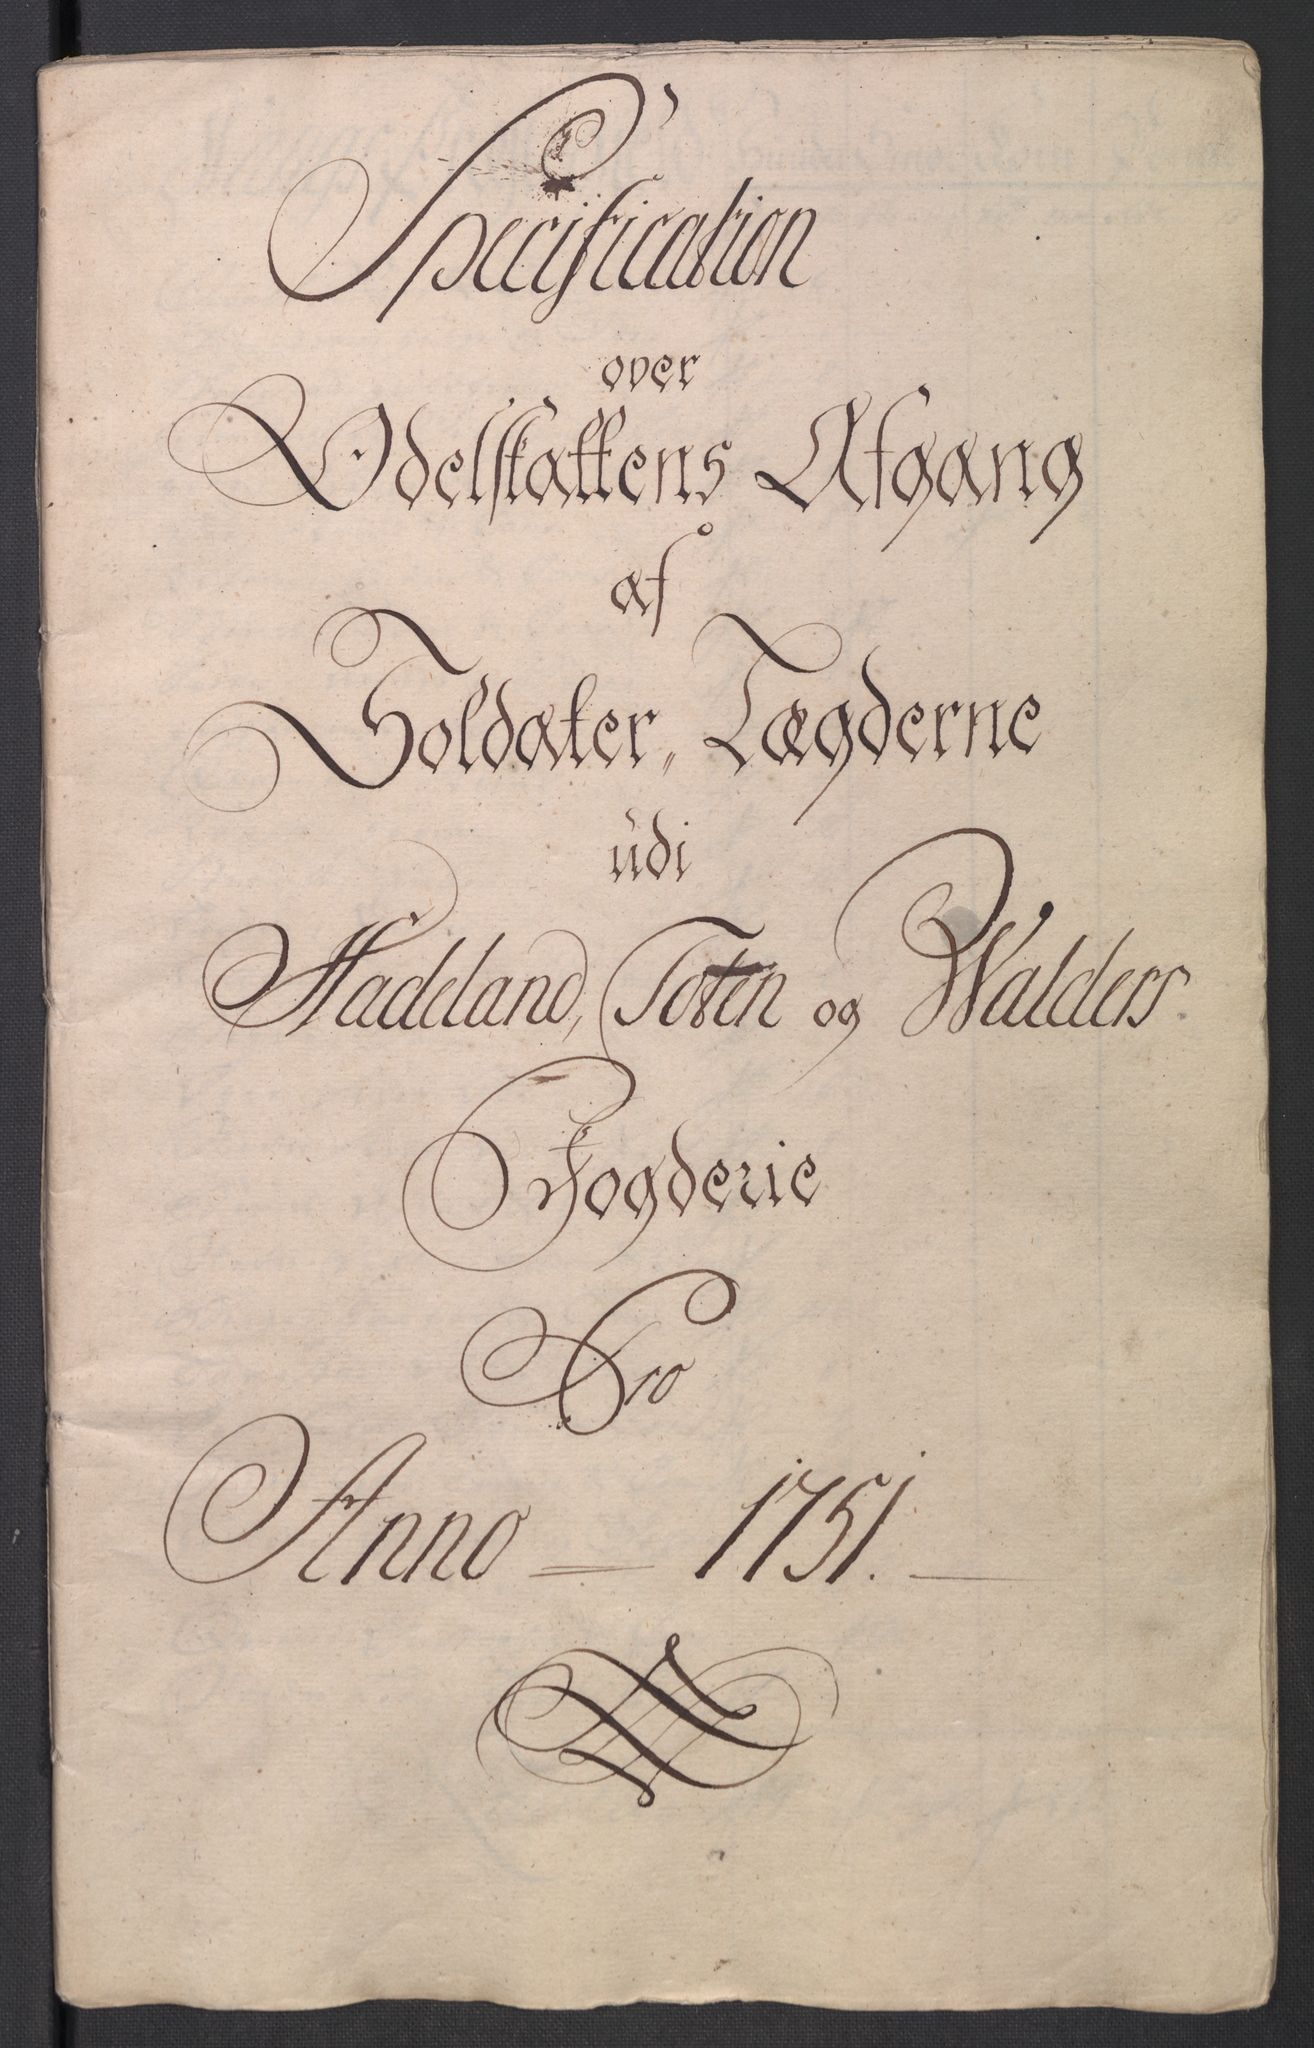 Specification
over
Odelskattens Afgang
af
Soldater, Lægderne
udi
Hadeland, Toten og Walders
Fogderie
Pro
Anno = 1751. —